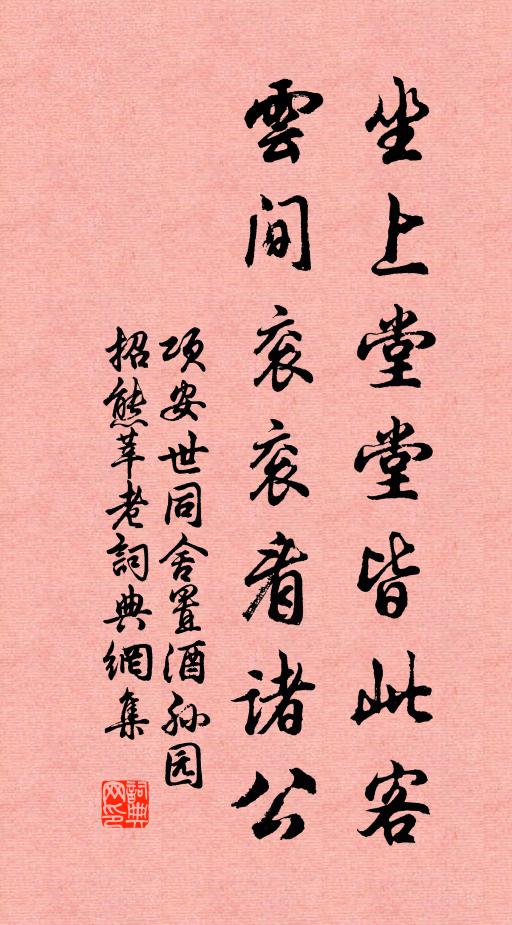 坐上堂堂皆此客
雲間衮衮看諸公
项安世同舍置酒孙园
招熊莘老詞典網集
詞典網印